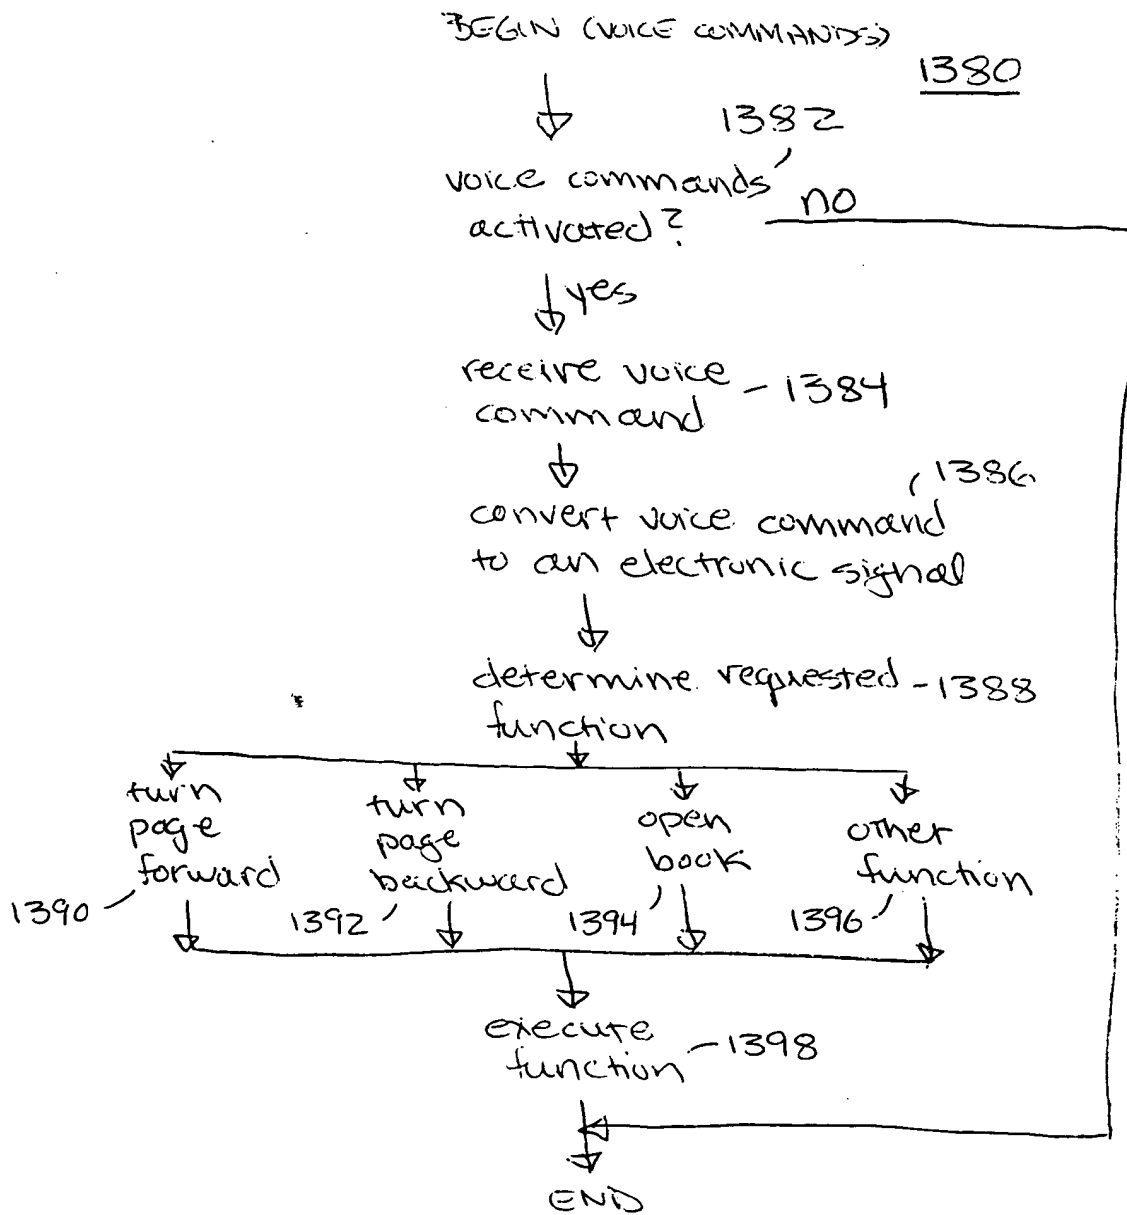 BEGIN (VOICE COMMANDS)
1380
1382
voice commands
activated?
no
yes
receive voice
command
- 1384
1386
convert voice command
to an electronic signal
determine requested
function
- 1388
turn
page
forward
1390
turn
page
backward
1392
open
book
1394
other
function
1396
execute
function
- 1398
END